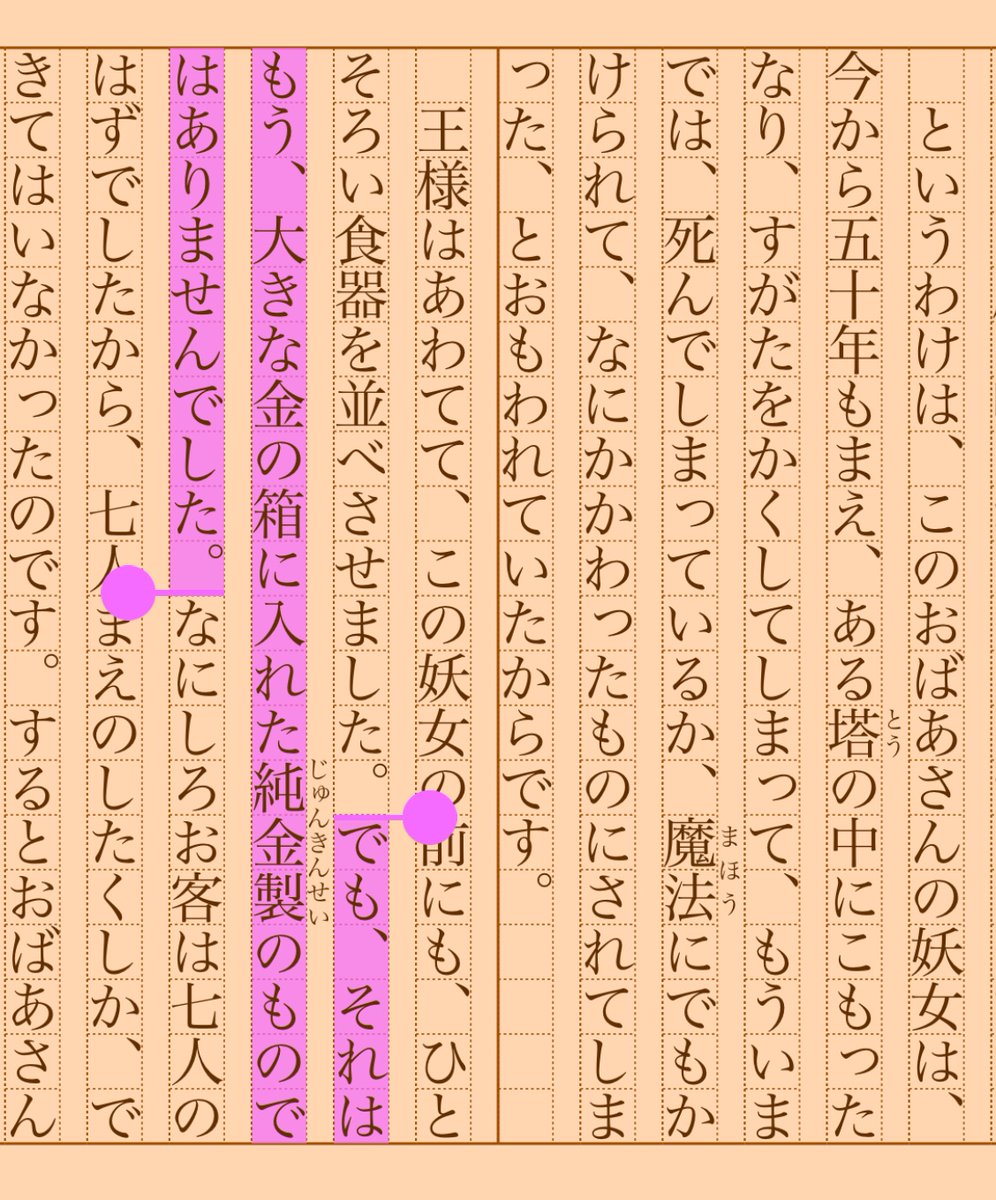 というわけは、このおばあさんの妖女は、
今から五十年もまえ、ある塔の中にこもった
とう
なり、すがたをかくしてしまって、もういま
では、死んでしまっているか、魔法にでもか
まほう
けられて、なにかかわったものにされてしま
った、とおもわれていたからです。
王様はあわてて、この妖女の前にも、ひと
そろい食器を並べさせました。でも、それは
もう、大きな金の箱に入れた純金製のもので
じゅんきんせい
はありませんでした。なにしろお客は七人の
はずでしたから、七人まえのしたくしか、で
きてはいなかったのです。するとおばあさん